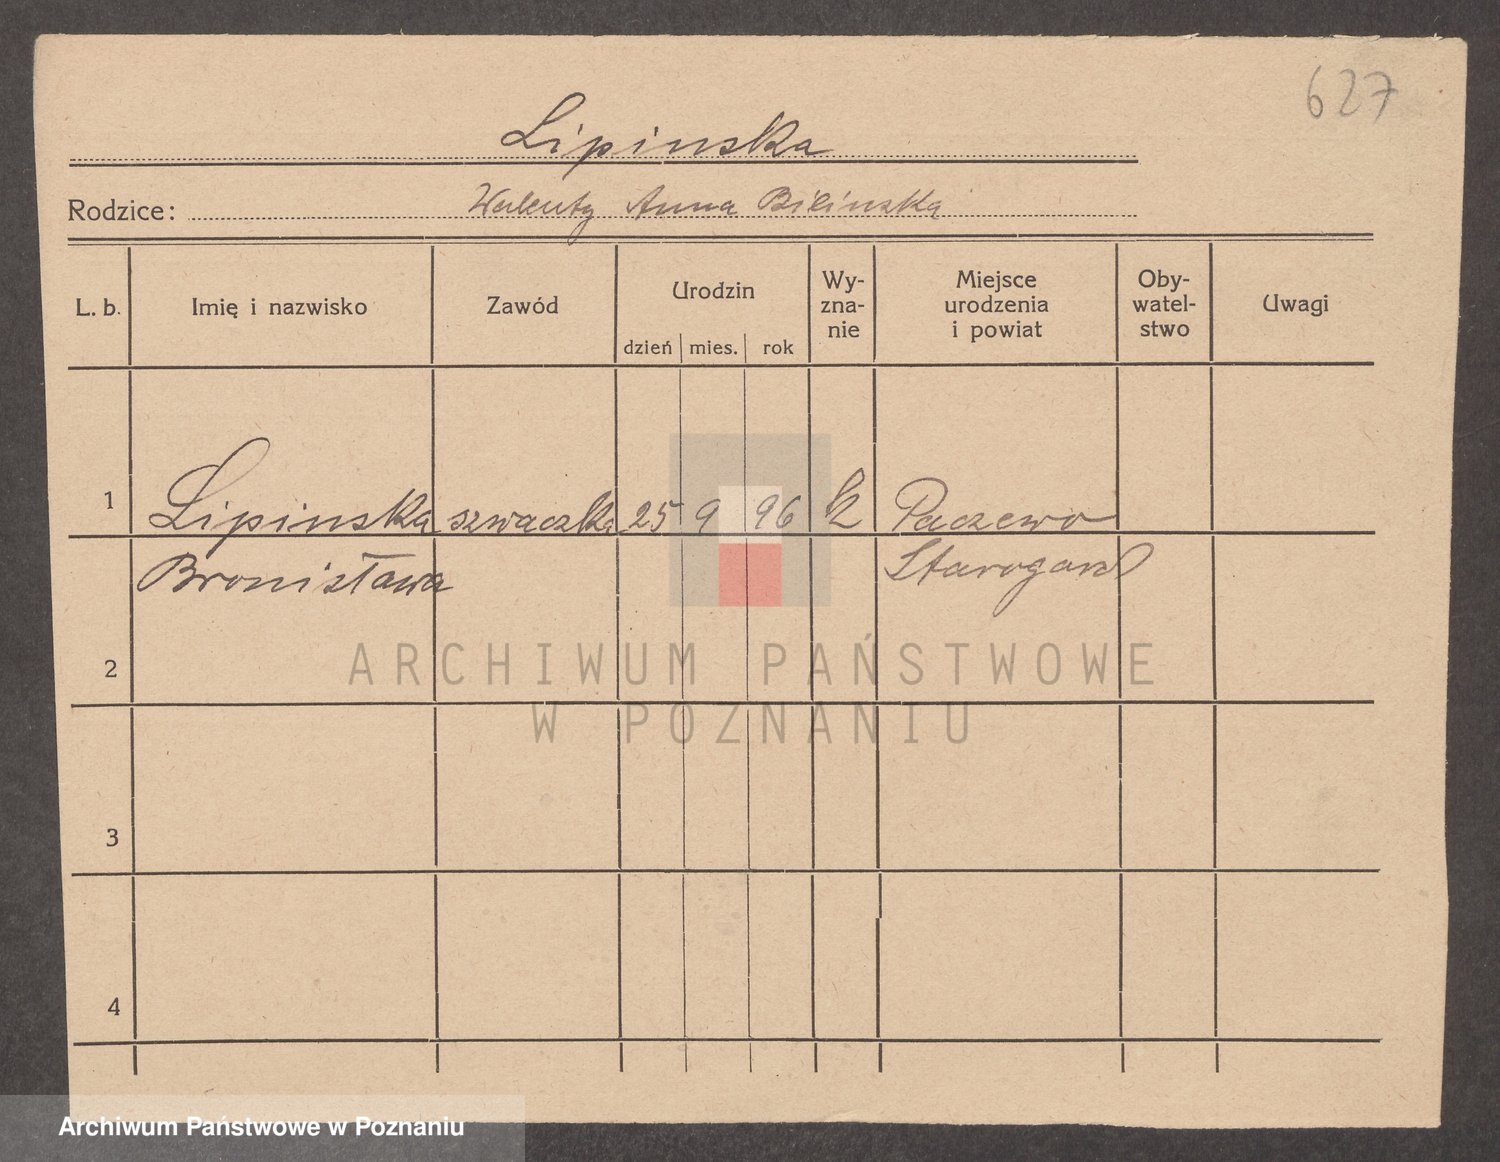 627
Lipinska
Rodzice: Walenty Anna Bilinska
L. b. Imię i nazwisko Zawód Urodzin dzień mies. rok Wy-zna-nie Miejsce urodzenia i powiat Oby-watel-stwo Uwagi
1 Lipinska szwaczka 25 9 96 k Paczewo
Bronisława Starogard
2
ARCHIWUM PAŃSTWOWE
W POZNANIU
3
4
Archiwum Państwowe w Poznaniu